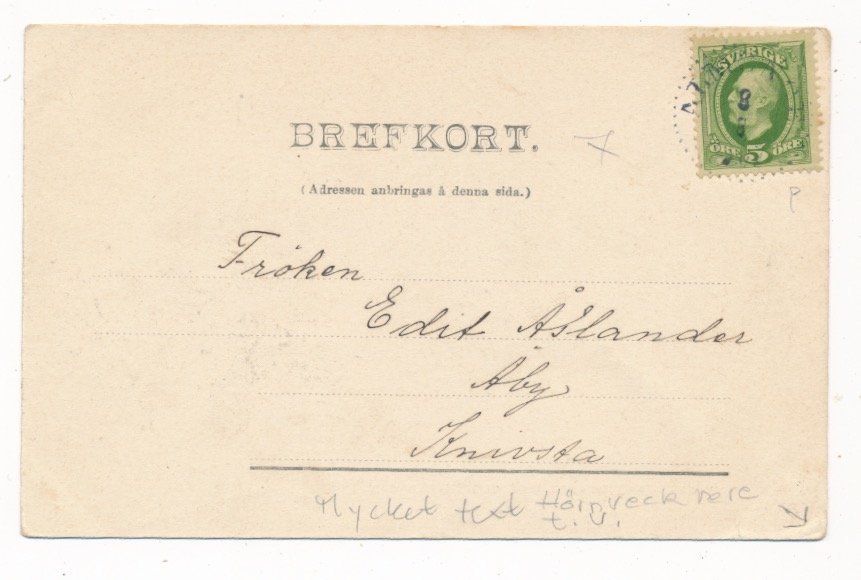 SVERIGE
8
ÖRE 5 ÖRE
BREFKORT.
(Adressen anbringas å denna sida.)
Fröken
Edit Åslander
Åby
Knivsta
Mycket text Hörnveck nere
t.v.